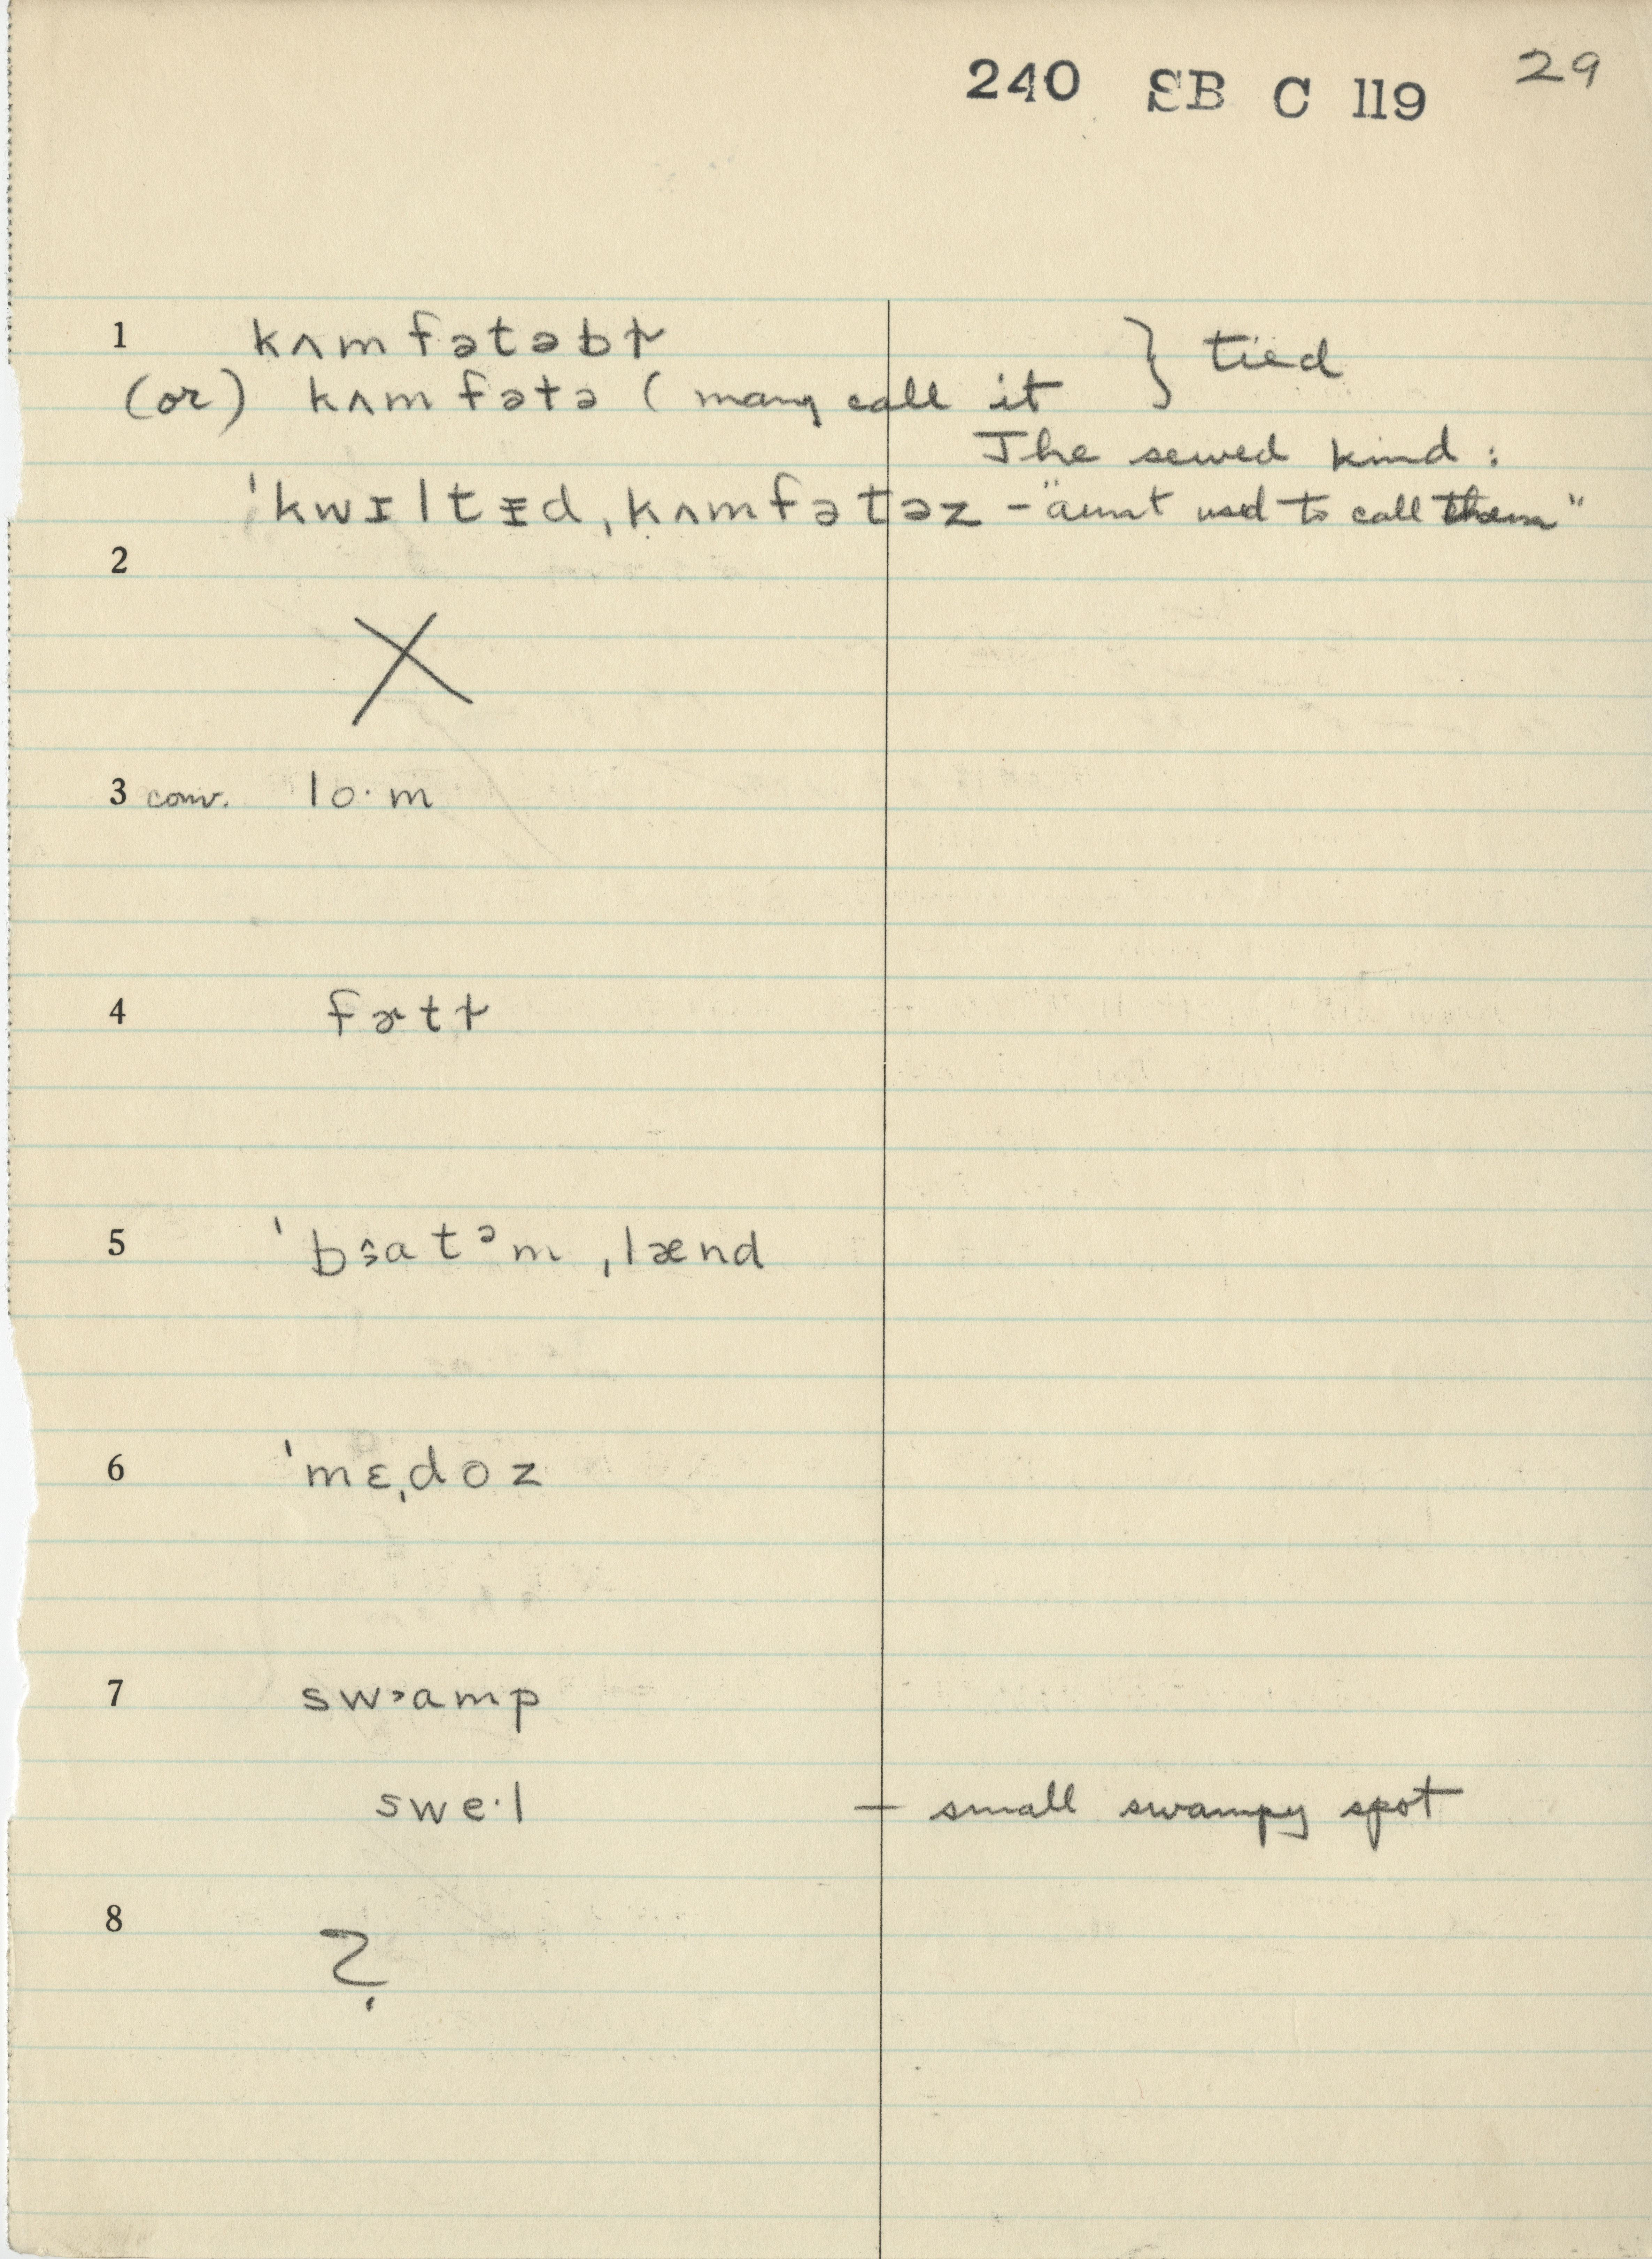 240 SB C 119 29
1 kʌmfətəbɫ } tied
(or) kʌmfətə (many call it
The sewed kind:
ˈkwɪltɪd ˌkʌmfətəz - "aunt used to call them"
2
X
3 conv. lo·m
4 fɚtɫ
5 ˈbɔatᵊm ˌlænd
6 ˈmɛˌdoz
7 swɔamp
swe·l — small swampy spot
8
?